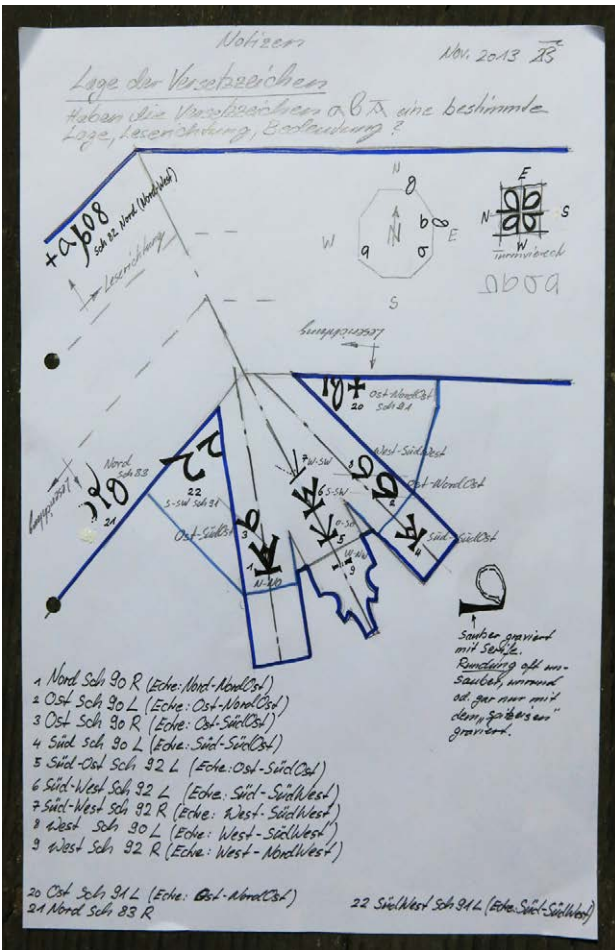 Notizen
Nov. 2013
Lage der Versetzzeichen
Haben die Versetzzeichen a b a eine bestimmte
Lage, Leserichtung, Bedeutung?
Sch 82 Nord (NordWest)
Leserichtung
N
W
E
S
a
b
E
N
S
W
Turmviereck
Leserichtung
20
Ost-NordOst
Sch 91
Nord
Sch 83
21
Leserichtung
22
S-SW Sch 91
Ost-SüdOst
3
1
N-NO
7 W-SW
6 S-SW
5
O-SO
W-NW
9
West-SüdWest
8
2
Ost-NordOst
4
Süd-SüdOst
sauber graviert
mit Serife.
Rundung oft un-
sauber, unrund
od. gar nur mit
dem „Spitzeisen"
graviert.
1 Nord Sch 90 R (Ecke: Nord-NordOst)
2 Ost Sch 90 L (Ecke: Ost-NordOst)
3 Ost Sch 90 R (Ecke: Ost-SüdOst)
4 Süd Sch 90 L (Ecke: Süd-SüdOst)
5 Süd-Ost Sch 92 L (Ecke: Ost-SüdOst)
6 Süd-West Sch 92 L (Ecke: Süd-SüdWest)
7 Süd-West Sch 92 R (Ecke: West-SüdWest)
8 West Sch 90 L (Ecke: West-SüdWest)
9 West Sch 92 R (Ecke: West-NordWest)
20 Ost Sch 91 L (Ecke: Ost-NordOst)
21 Nord Sch 83 R
22 SüdWest Sch 91 L (Ecke: Süd-SüdWest)